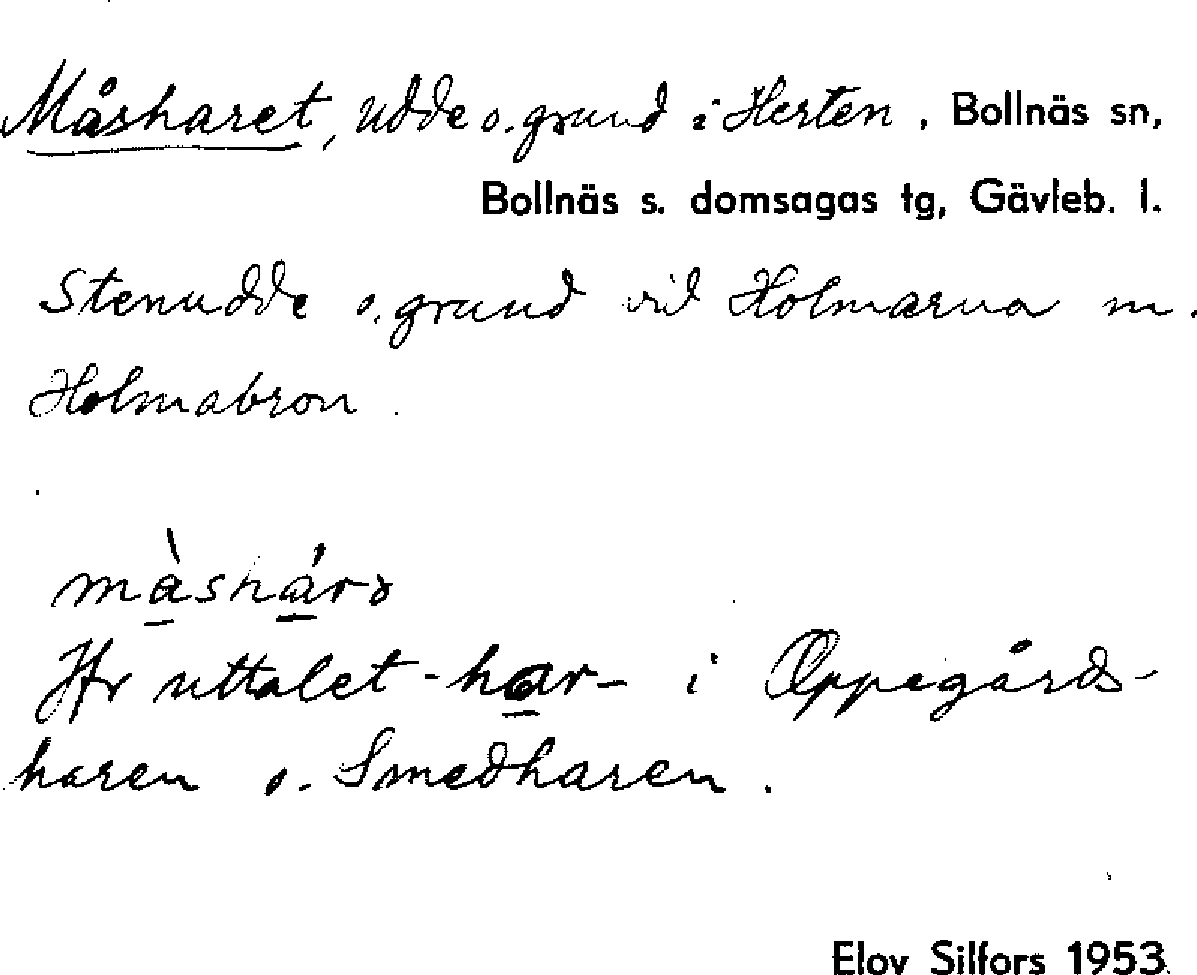 Måsharet, udde o. grund i Herten, Bollnäs sn,
Bollnäs s. domsagas tg, Gävleb. l.
Stenudde o. grund vid Holmarna m.
Holmabron.
mà̱shá̱rə
Jfr uttalet -ha̱r- i Oppegårds-
haren o. Smedharen.
Elov Silfors 1953